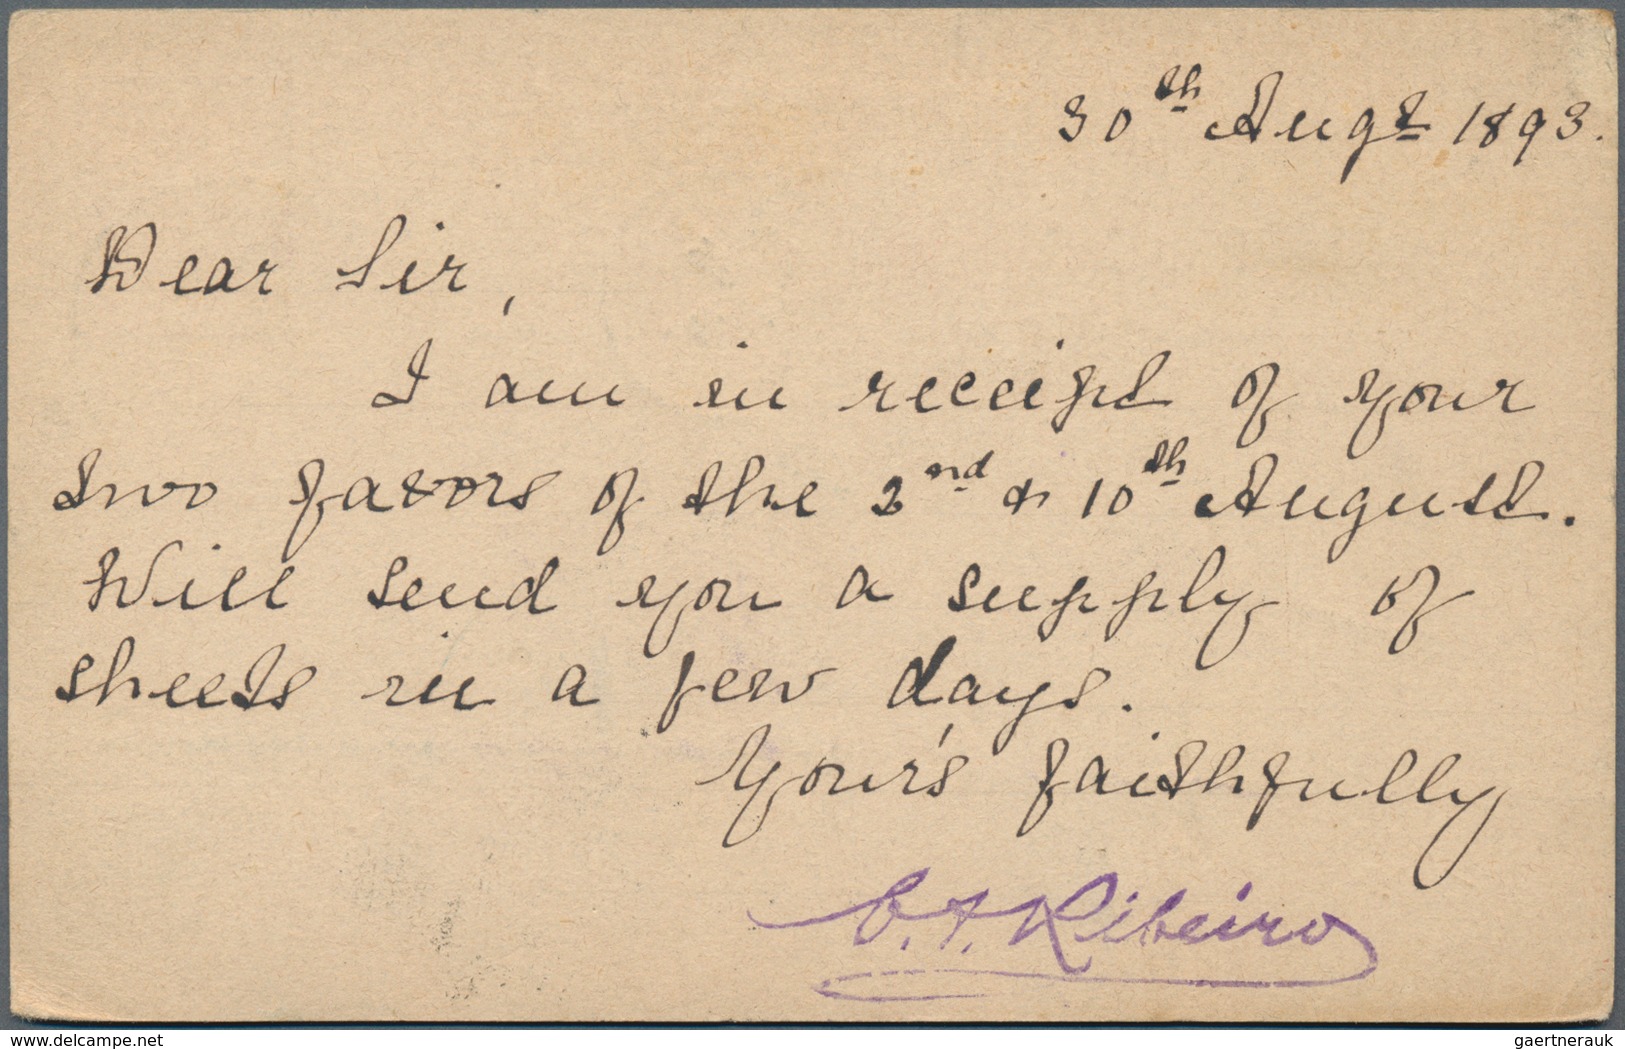 30th Augt 1893.
Dear Sir,
I am in receipt of your
two favors of the 2nd & 10th August.
Will send you a supply of
sheets in a few days.
Your's faithfully
Ribeiro
www.delcampe.net
gaertnerauk